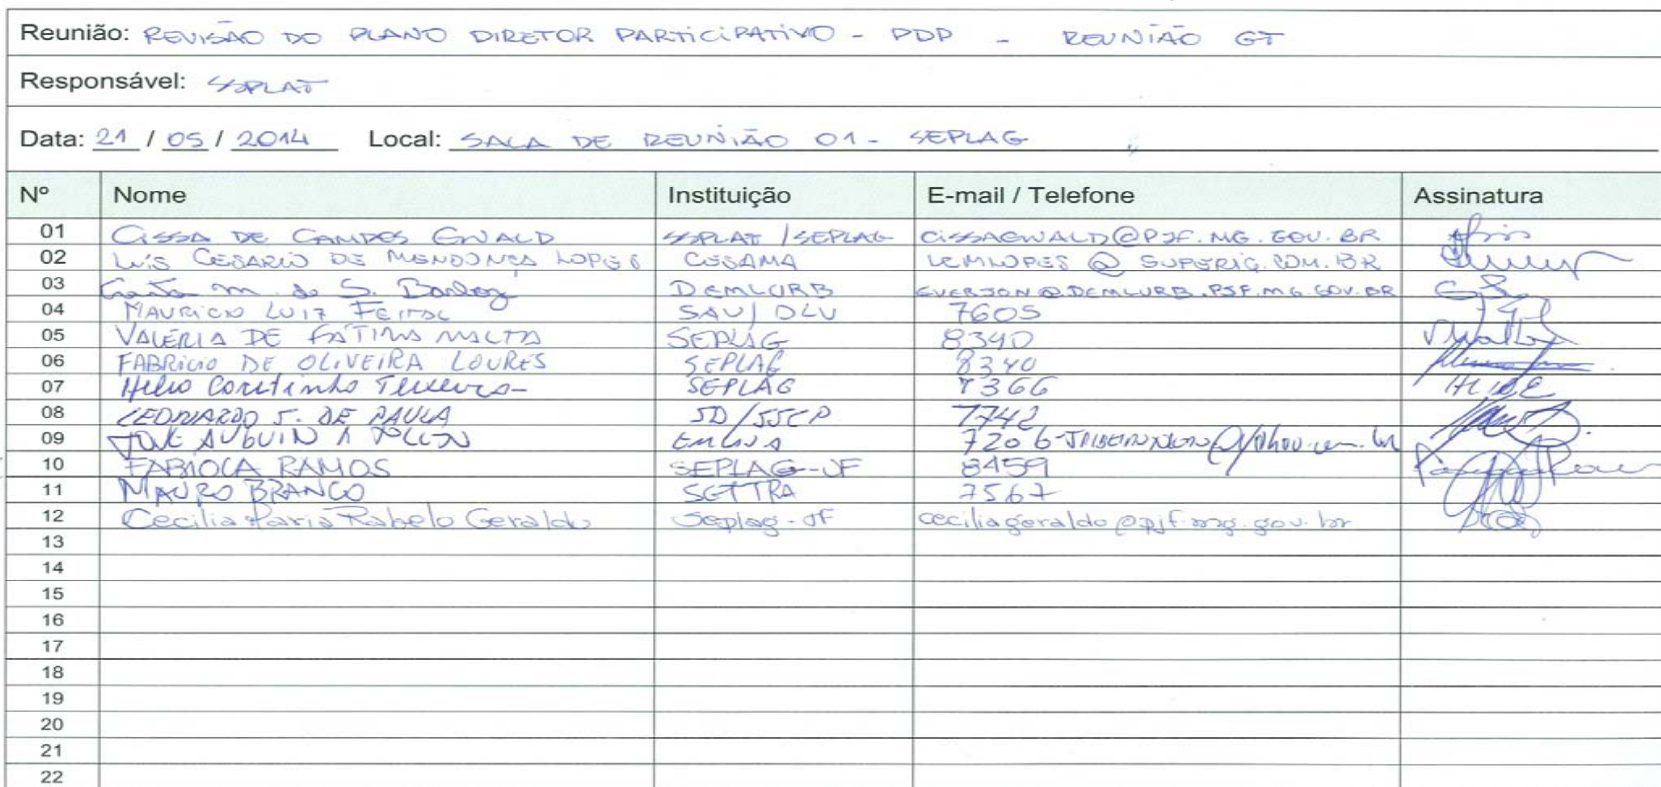 Reunião: REVISÃO DO PLANO DIRETOR PARTICIPATIVO - PDP - REUNIÃO GT
Responsável: SSPLAT
Data: 21 / 05 / 2014 Local: SALA DE REUNIÃO 01 - SEPLAG
Nº Nome Instituição E-mail / Telefone Assinatura
01 CISSA DE CAMPOS EWALD SSPLAT / SEPLAG CISSAEWALD@PJF.MG.GOV.BR
02 LUÍS CESARIO DE MENDONÇA LOPES CESAMA LCMLOPES @ SUPERIG.COM.BR
03 m. de S. DEMLURB EVERSON@DEMLURB.PJF.MG.GOV.BR
04 MAURICIO LUIZ SAU/ DLU 7605
05 VALÉRIA DE FÁTIMA MALTA SEPLAG 8340
06 FABRICIO DE OLIVEIRA LOURES SEPLAG 8340
07 Helio Coutinho Teixeira SEPLAG 7366
08 LEONARDO J. DE PAULA SD/SSCP 7742
09 7206
10 FABIOLA RAMOS SEPLAG-JF 8459
11 MAURO BRANCO SETTRA 7567
12 Cecilia Faria Rabelo Geraldo Seplag-JF ceciliageraldo@pjf.mg.gov.br
13
14
15
16
17
18
19
20
21
22